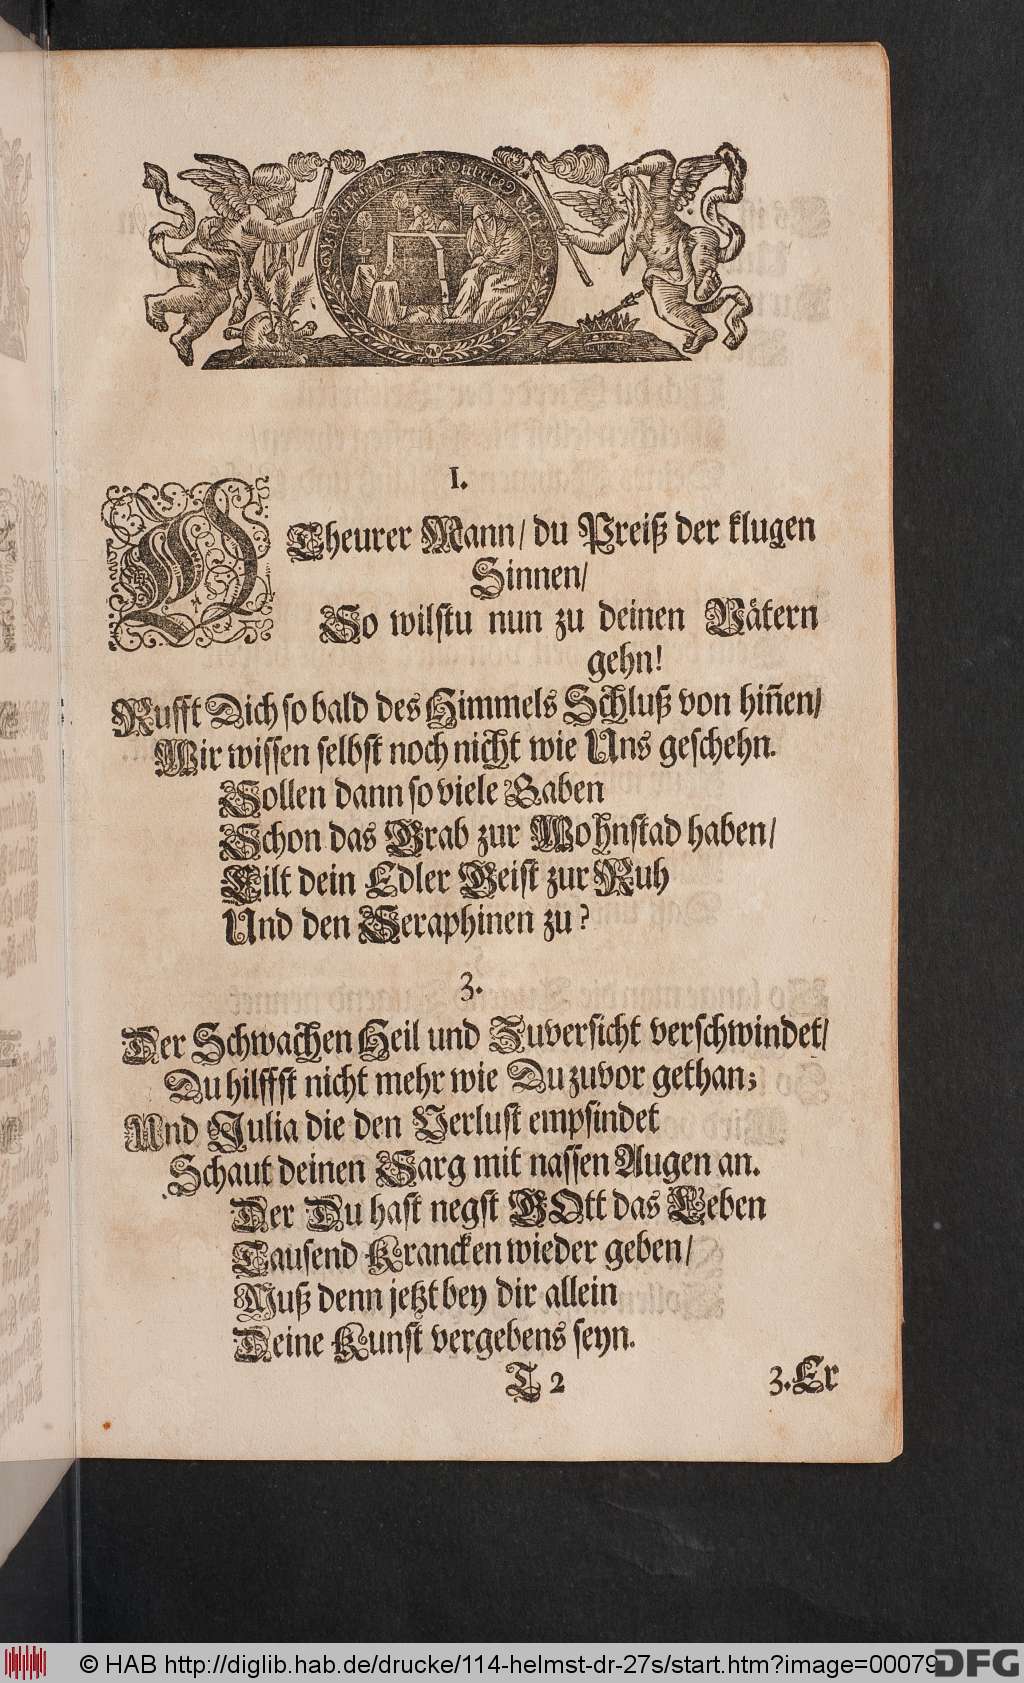 I.
O Theurer Mann/ du Preiß der klugen
Sinnen/
So wilstu nun zu deinen Vätern
gehn!
Rufft Dich so bald des Himmels Schluß von hiñen/
Wir wissen selbst noch nicht wie Uns geschehn.
Sollen dann so viele Gaben
Schon das Grab zur Wohnstad haben/
Eilt dein Edler Geist zur Ruh
Und den Seraphinen zu?
3.
Der Schwachen Heil und Zuversicht verschwindet/
Du hilffst nicht mehr wie Du zuvor gethan;
Und Julia die den Verlust empfindet
Schaut deinen Sarg mit nassen Augen an.
Der Du hast negst GOtt das Leben
Tausend Krancken wieder geben/
Muß denn jetzt bey dir allein
Deine Kunst vergebens seyn.
T 2
3. Er
© HAB http://diglib.hab.de/drucke/114-helmst-dr-27s/start.htm?image=00079
DFG